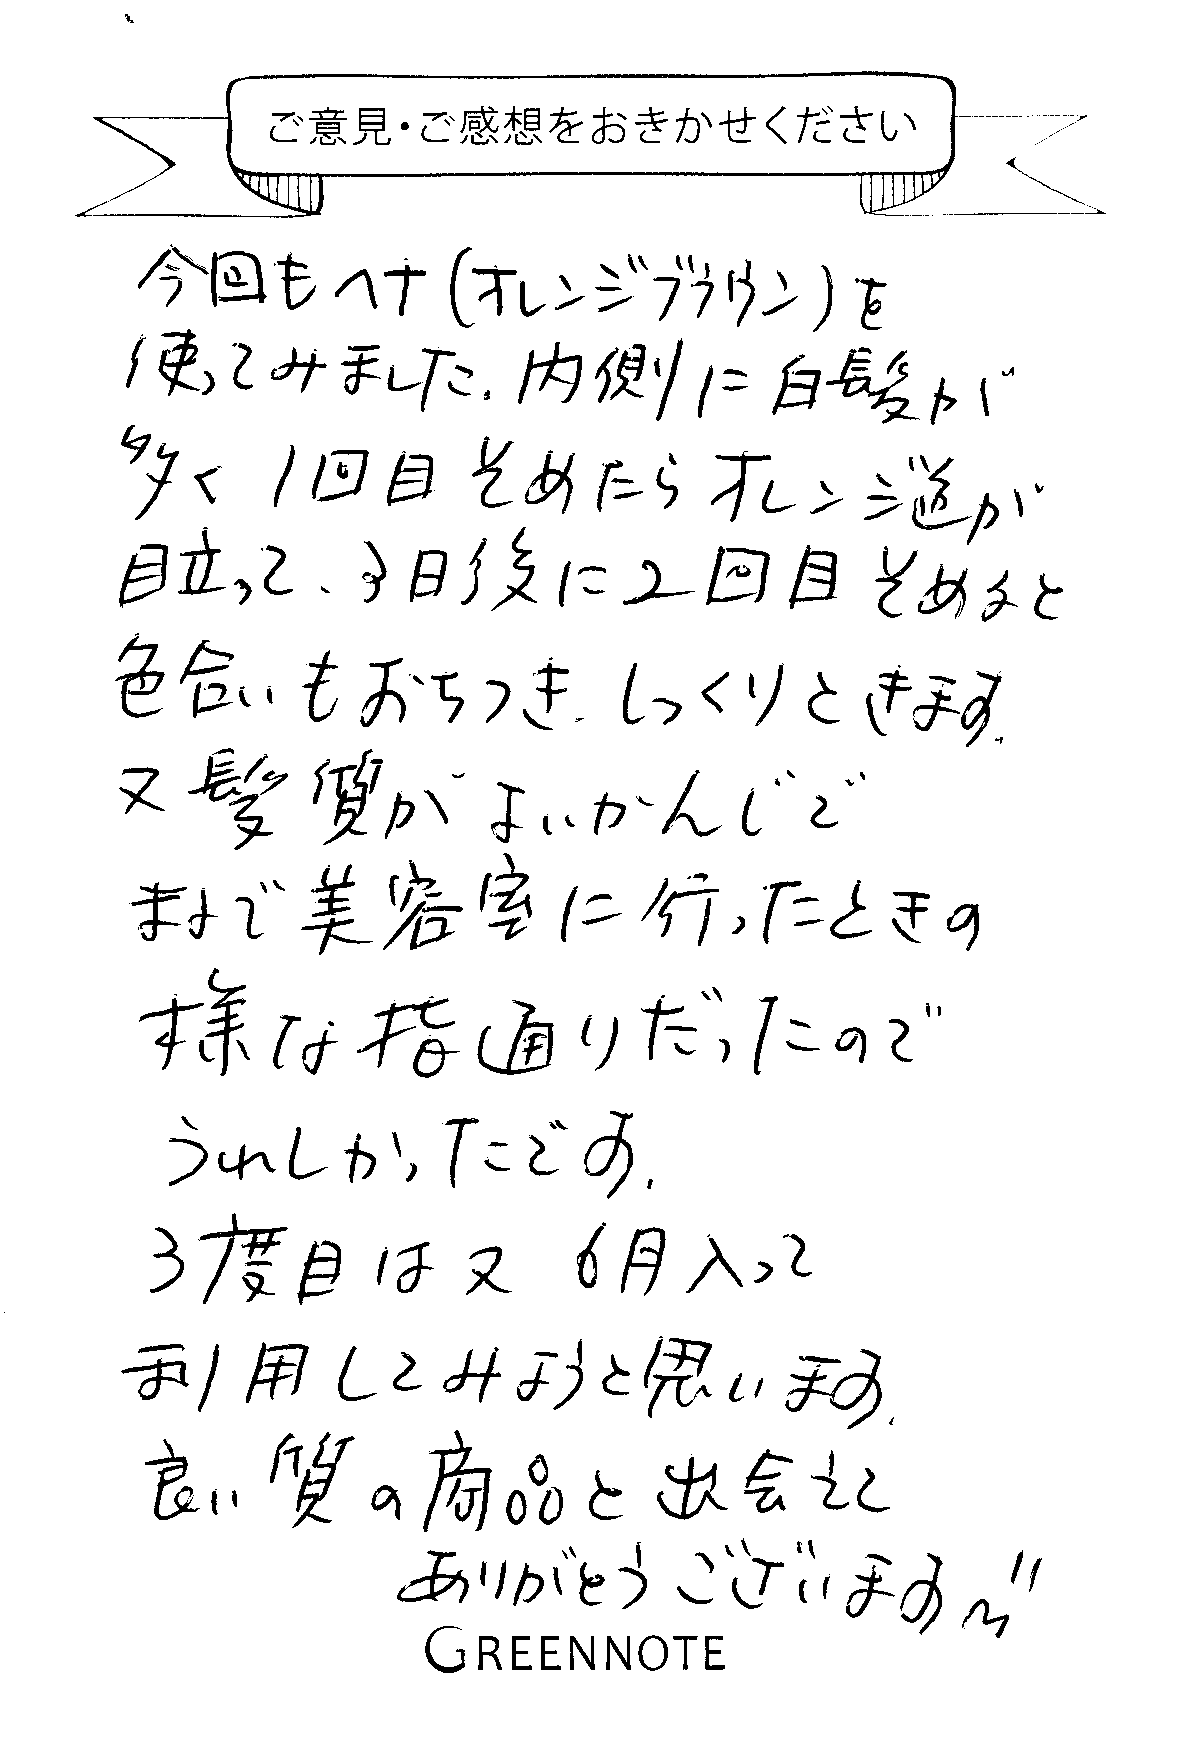 ご意見・ご感想をおきかせください
今回もヘナ(オレンジブラウン)を
使ってみました。内側に白髪が
多く1回目そめたらオレンジ道が
目立って、3日後に2回目そめると
色合いもおちつき、しっくりときます。
又髪質がよいかんじで
まるで美容室に行ったときの
様な指通りだったので
うれしかったです。
3度目は又 6月入って
利用してみようと思います。
良い質の商品と出会えて
ありがとうございます〜"
GREENNOTE